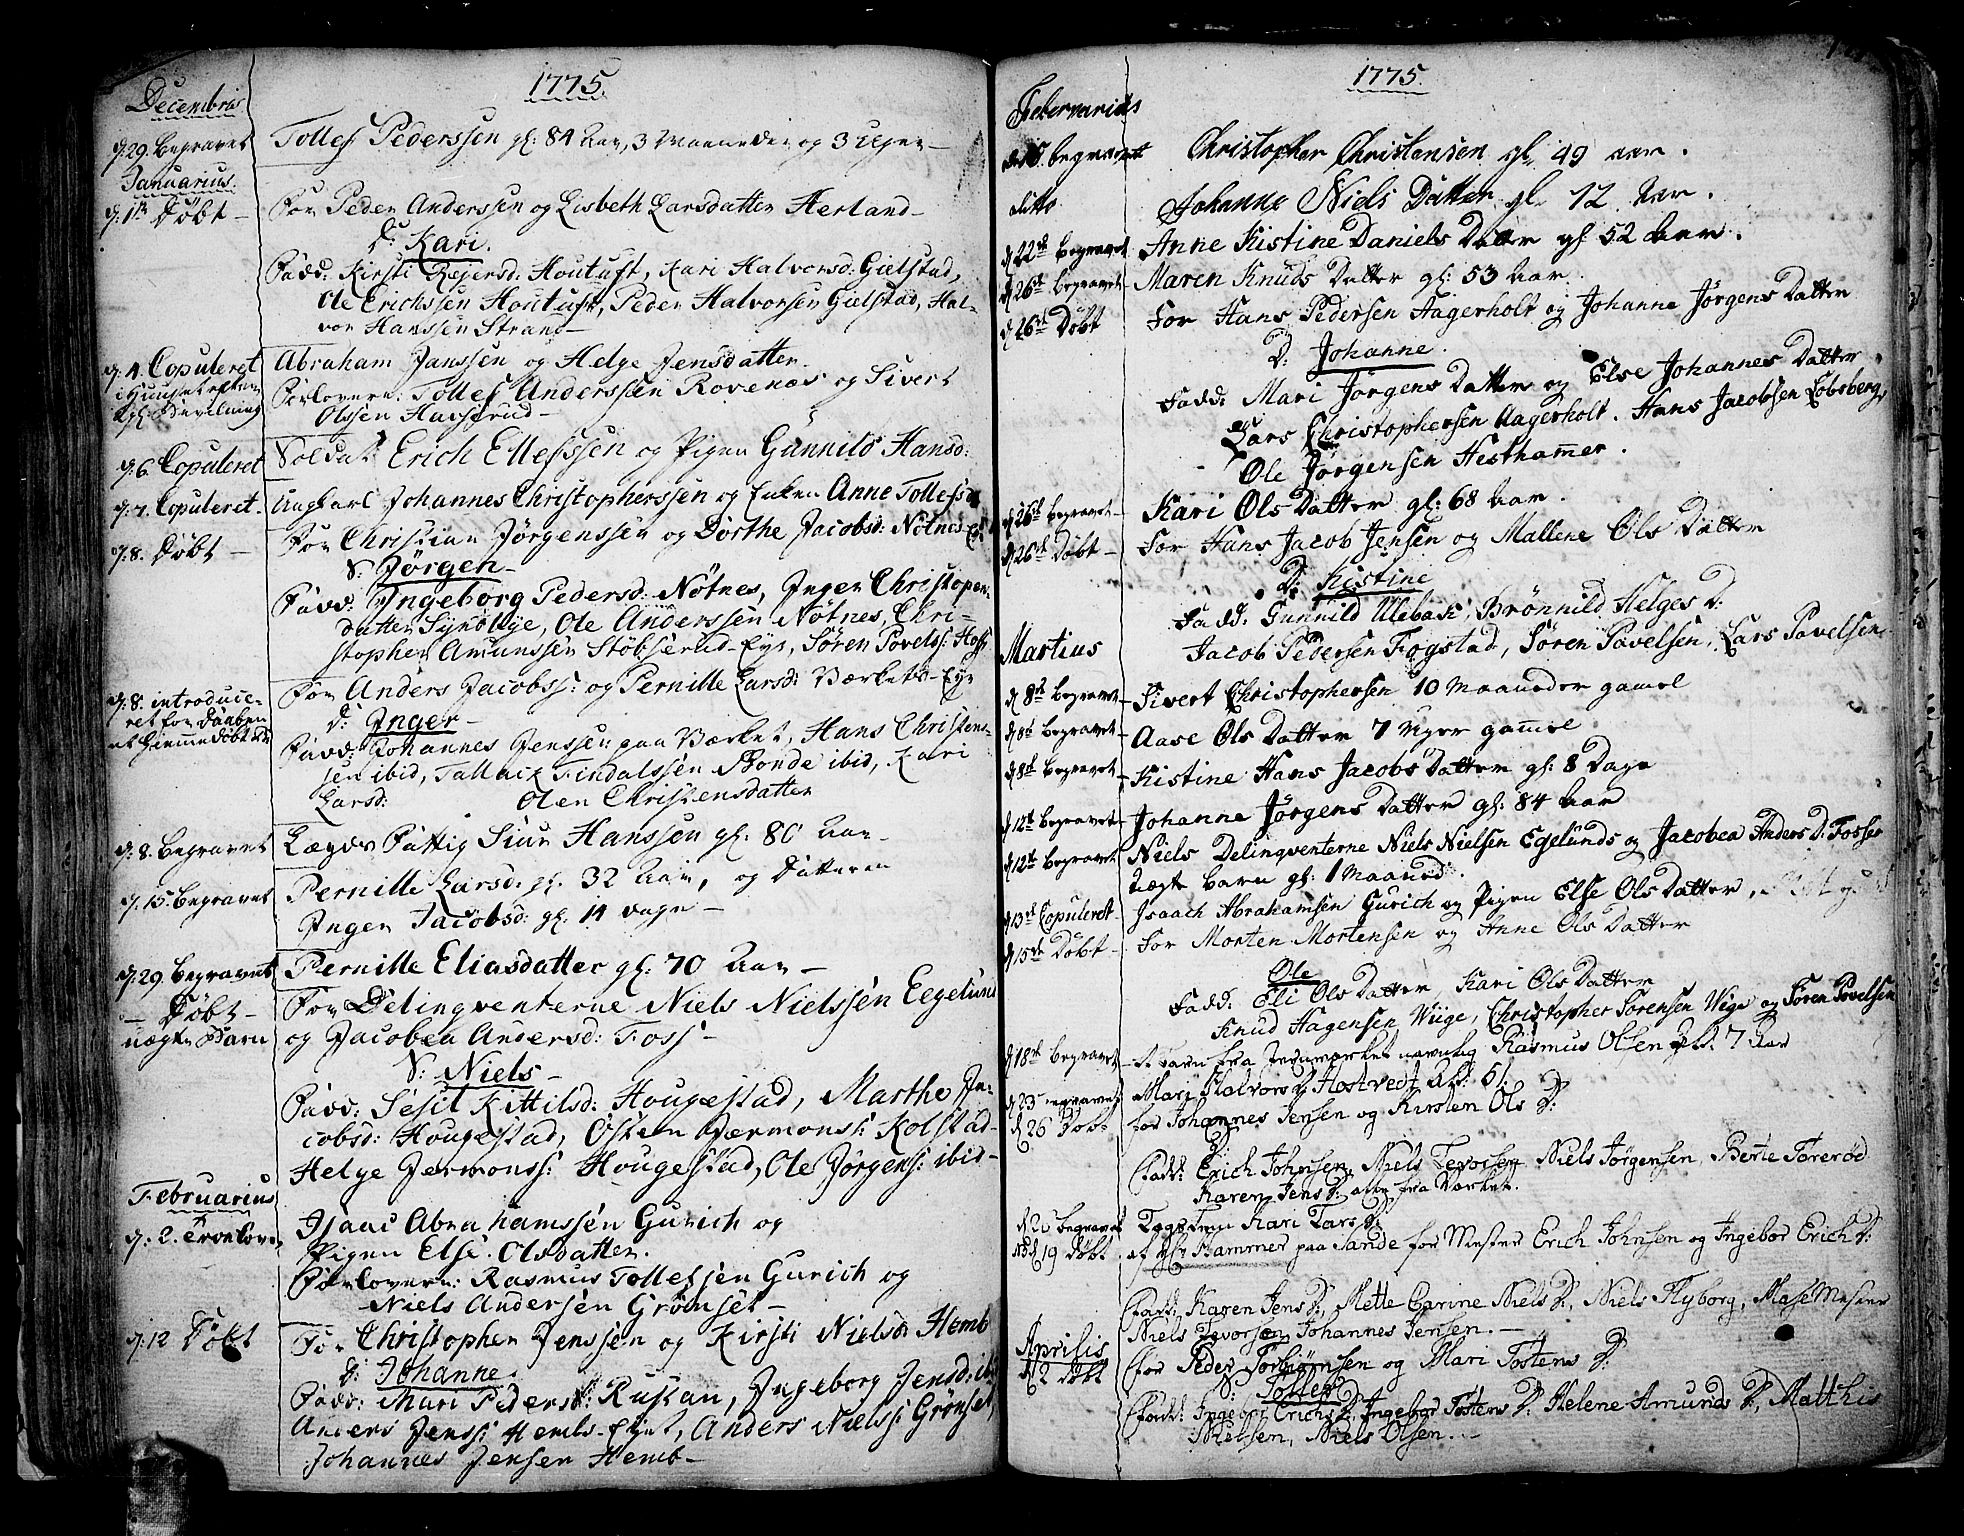 1775.
Decembris
d. 29. Begravet Tollef Pederssen gl: 84 Aar, 3 Maaneder og 3 Uger
Januarius.
d. 1ste Døbt For Peder Anderssen og Lisbeth Larsdatter Herland
D: Kari.
Fadd: Kirsti Rejersd: Houtuft, Kari Halvorsd: Gielstad,
Ole Erichssen Houtuft, Peder Halvorsen Gielstad, Hal-
vor Hanssen Strand
d. 4. Copuleret Abraham Janssen og Helge Jensdatter
Forlovere: Tollef Anderssen Rovenæs og Sivert
Olssen
d. 6 Copuleret Soldat Erich Ellefssen og Pigen Gunnild Hansd:
d. 7. Copuleret. Ungkarl Johannes Christopherssen og Enken Anne Tollefsd
d. 8. Døbt For Christian Jørgenssen og Dorthe Jacobsd: Nøtnes
S: Jørgen
Fadd: Ingeborg Pedersd: Nøtnes, Inger Christopher
datter, Ole Anderssen Nøtnes, Chri-
stopher Amunssen Støbserud-Eye, Søren Povelss:
d. 8. introduce-
ret for Daaben
et hiemmedøbt For Anders Jacobss: og Pernille Larsd: Værkets-Eye
D: Inger
Fadd: Johannes Jenssen paa Værket, Hans Christens-
sen ibid, Tallack Findalssen Bonde ibid, Kari
Larsd: Olen Christensdatter
d. 8. Begravet Lægds Fattig Siur Hanssen gl. 80 Aar
d. 15. Begravet Pernille Larsd: gl. 32 Aar, og Datteren
Inger Jacobsd: gl. 14 dage
d. 29. Begravet Pernille Eliasdatter gl: 70 Aar
Døbt
uægte Barn For Delinqventerne Niels Nielssen Eegelund
og Jacobea Andersd: Foss
S: Niels
Fadd: Sesil Kittilsd: Hougestad, Marthe Ja-
cobsd: Hougestad, Østen Jermonss: Kolstad
Helge Jermonss: Hougestad, Ole Jørgens: ibid
Februarius
d: 2. Isaac Abrahamssen Gurich og
Pigen Else Olsdatter.
Forlovere: Rasmus Tollefsen Gurich og
Niels Andersen Grønset
d: 12 Døbt For Christopher Jenssen og Kirsti Nielsd: Hemb
D: Johanne.
Fadd: Mari Pedersd: Rustan, Ingeborg Jensd: ibid
Anders Jenss: Hembs-Eyet, Anders Nielss: Grønset,
Johannes Jensen Hemb
1775.
Febervarius
begravet Christopher Christensen gl. 49 aar.
ditto Johanne Niels Datter gl. 12 Aar.
d 22de begravet Anne Kistine Daniels Datter gl: 52 Aar.
d 26de begravet Maren Knuds Datter gl: 53 Aar.
d 26de Døbt For Hans Pedersen Aagerholt og Johanne Jørgens Datter
D: Johanne.
Fadd: Mari Jørgens Datter og Else Johannes Datter
Lars Christophersen Aagerholt. Hans Jacobsen Løbsberg,
Ole Jørgensen Hesthammer.
d 26de begravet Kari Ols Datter gl: 68 Aar.
d 26de Døbt For Hans Jacob Jensen og Mallene Ols Datter
D: Kistine
Fadd: Gunnild Ulebast, Brønnild Helges D:
Jacob Pedersen Fogstad, Søren Pavelsen, Lars Pavelsen
Martius
d 8de begravet Sivert Christophersen 10 Maaneder gamel
d 8de begravet Aase Ols Datter 7 Uger gammel
d 8de begravet Kistine Hans Jacobs Datter gl: 8 Dage
d 12te begravet Johanne Jørgens Datter gl: 84 Aar
d 12te begravet Niels Delinqventerne Niels Nielsen Egelunds og Jacobea Anders D: Fosser
Uægte barn gl: 1 Maaned.
d 13de Copuleret Isaach Abrahamsen Gurich og Pigen Else Ols Datter,
d 15de Døbt For Morten Mortensen og Anne Ols Datter
Ole
Fadd: Eli Ols Datter, Kari Ols Datter
Knud Hagensen Viige, Christopher Sørensen Vige og Søren Povelsen
d 18de begravet et barn fra Jernværket navnlig Rasmus Olsen 7 Aar
d 23 begravet Mari Halvors D: Hostvedt
d 26 Døbt for Johannes Jensen og Kirsten Ols D:
Fadd: Erich Johnsen, Niels Tevorsen, Niels Jørgensen, Berte Torerød
Karen Jens D: alle fra Værket.
begravet Kari Lars D:
19 Døbt Hammer paa Sande for Mester Erich Johnsen og Ingebor Erich D:
Fadd: Karen Jens D:, Mette Carine Niels D:, Niels Flyborg, Mester
Niels Tevorsen, Johannes Jensen.
Aprilis
d 2 døbt for Peder Torbiørnsen og Mari Tostens D:
S: Tollef
Fadd: Ingebor Erichs D:, Ingebor Tostens D: Helene Amunds D:, Matthis
Nielsen, Niels Olsen.